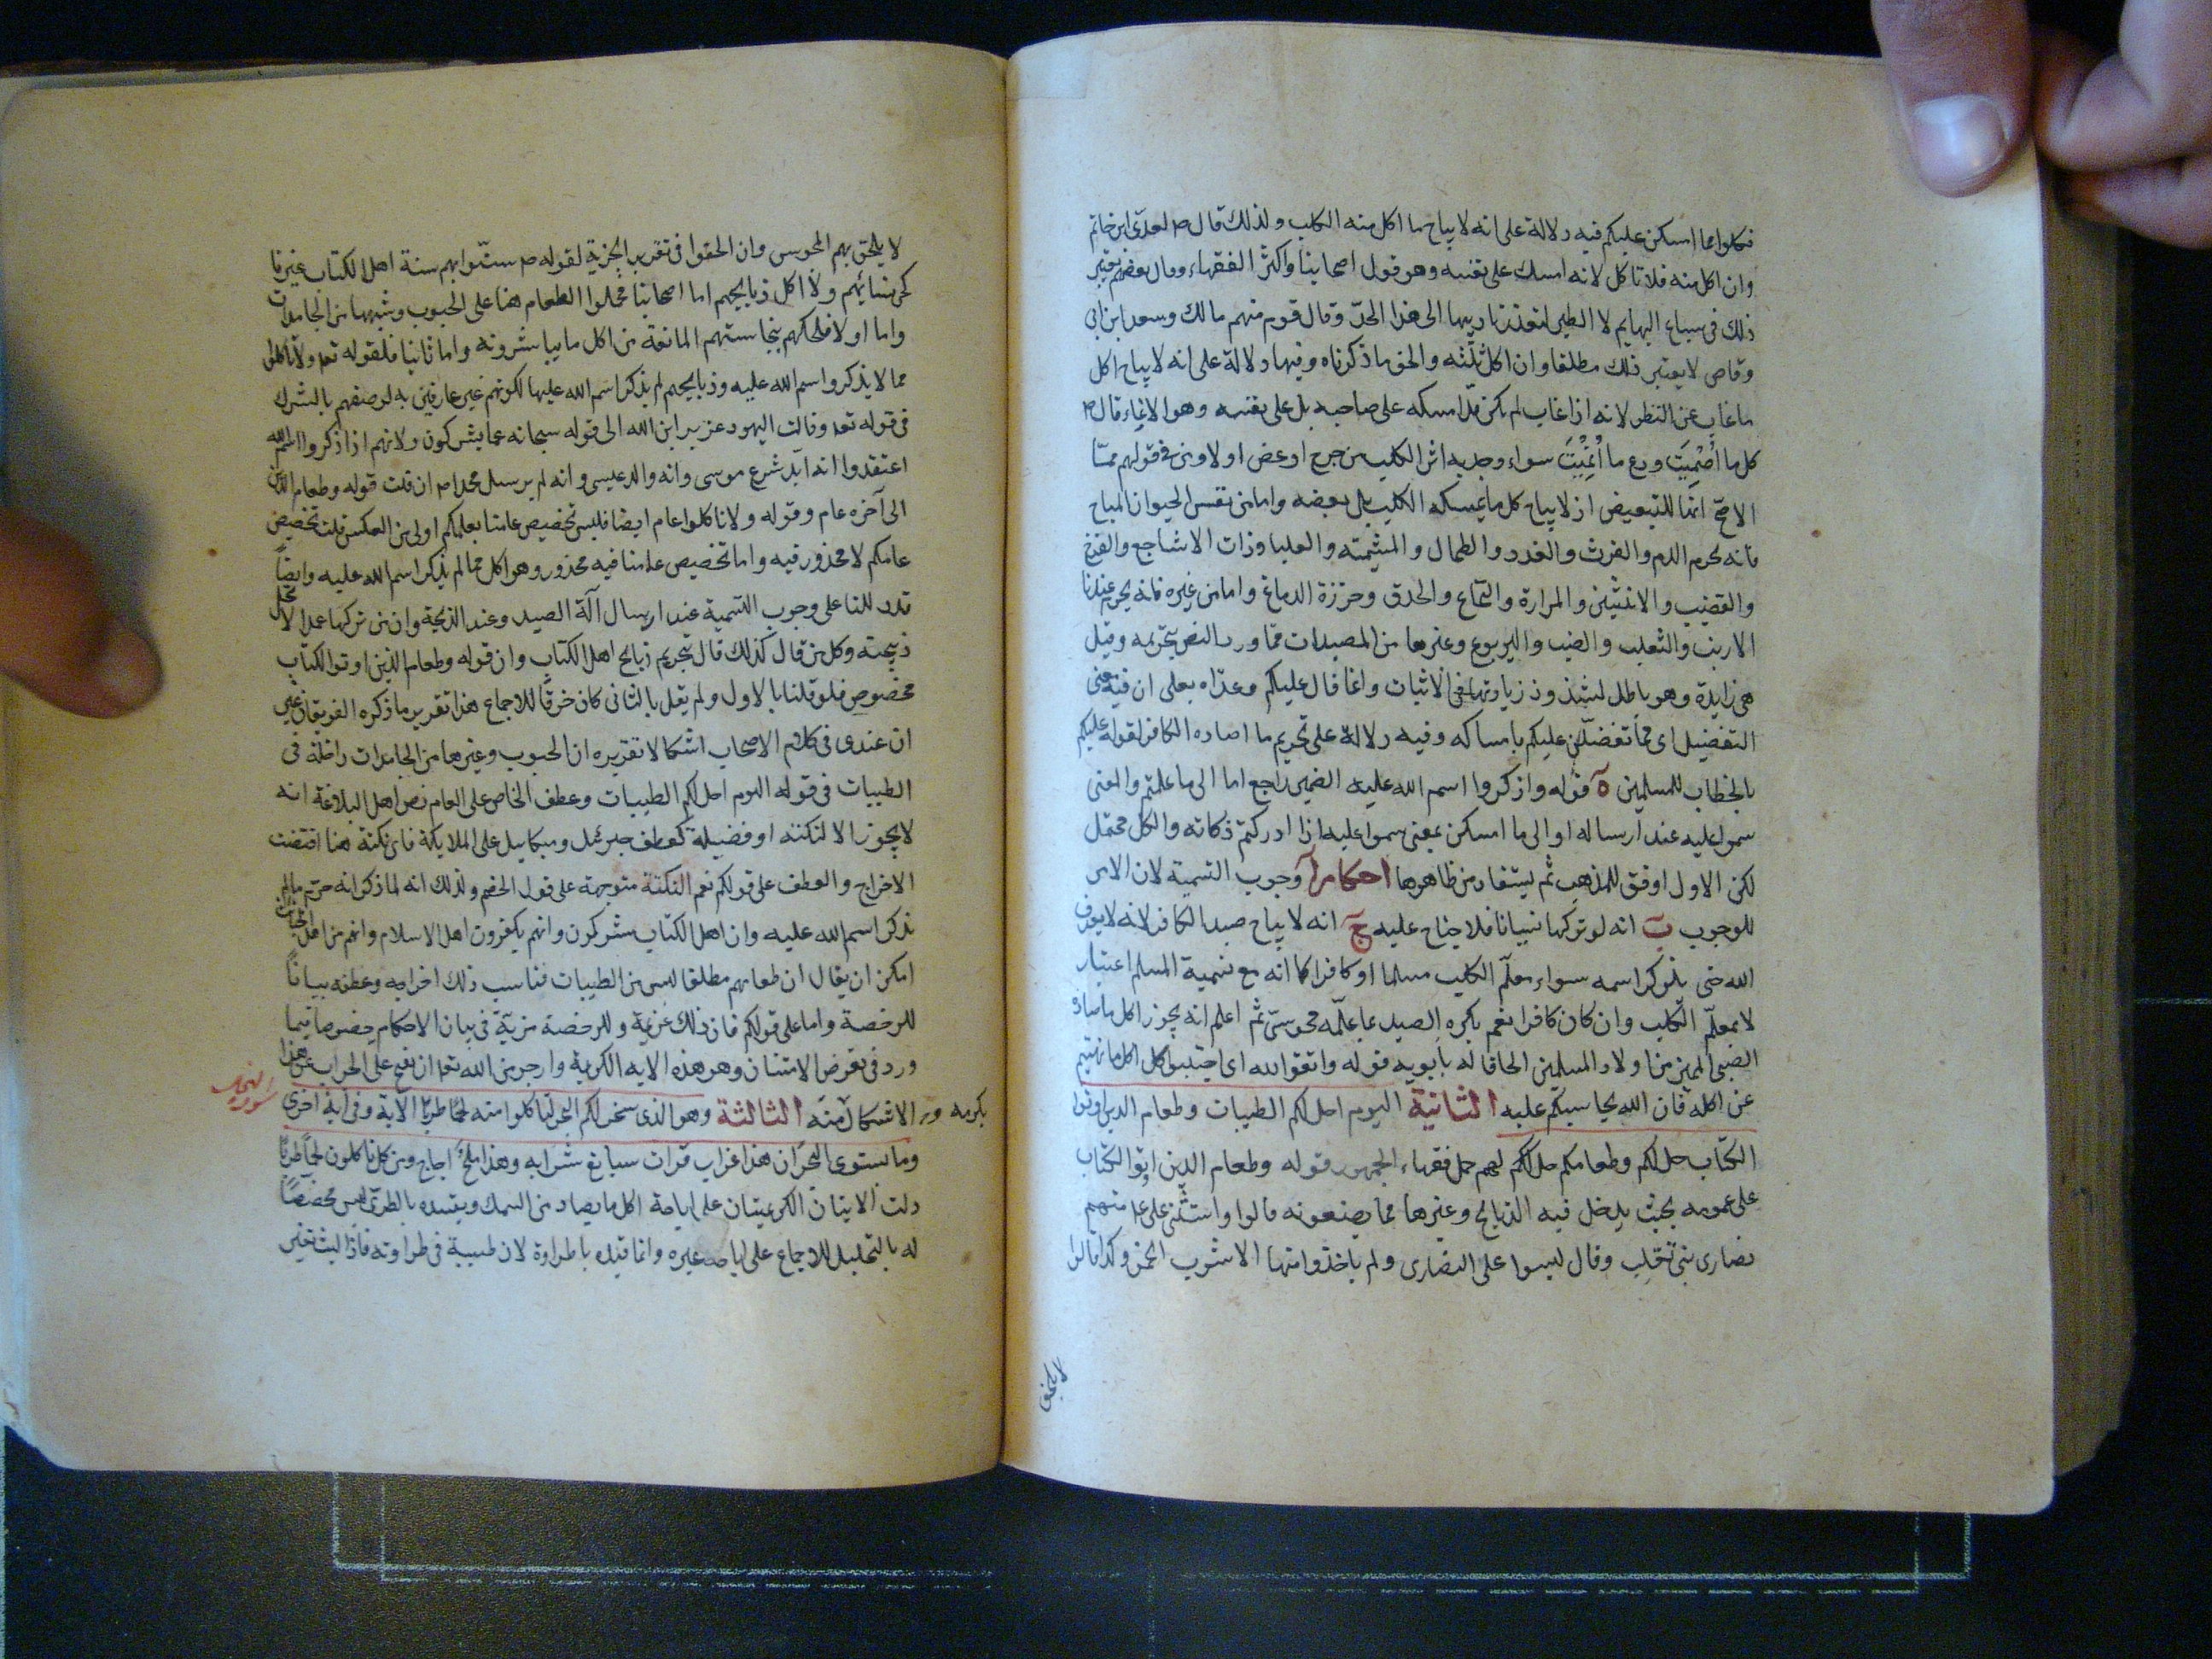 فكلوا مما امسكن عليكم فيه دلالة على انه لا يباح ما اكل منه الكلب ولذلك قال ص لعدى ابن حاتم
وان اكل منه فلا تاكل لانه امسك على نفسه وهو قول اصحابنا واكثر الفقهاء وقال بعضهم يعتبر
ذلك فى سباع البهايم لا الطير لتعذر تاديبها الى هذا الحدّ وقال قوم منهم مالك وسعد ابن ابى
وقاص لا يعتبر ذلك مطلقا وان اكل ثلثه والحق ما ذكرناه وفيها دلالة على انه لا يباح اكل
ما غاب عن النظر لانه اذا غاب لم يكن قد امسكه على صاحبه بل على نفسه وهو الانماء قال ص
كل ما أَصْمَيتَ ودع ما أَنْمَيْتَ سواء وجد به اثر الكلب من جرح او عض او لا ومن فى قولهم ممّا
الاصحّ انها للتبعيض اذ لا يباح كل ما يمسكه الكلب بل بعضه واما من نفس الحيوان المباح
فانه يحرم الدم والفرث والغدد والطحال والمشيمة والعلبا وذات الاشاجع والفرج
والقضيب والانثيين والمرارة والنخاع والحدق وخرزة الدماغ واما من غيره فانه يحرم عندنا
الارنب والثعلب والضب واليربوع وغيرها من المصيدات ممّا ورد النص بتحريمه وقيل
هى زايدة وهو باطل لشذوذ زيادتها فى الاثبات وانما قال عليكم وعدّاه بعلى ان فيه معنى
التفضيل اى ممّا تفضّلن عليكم بامساكه وفيه دلالة على تحريم ما اصاده الكافر لقوله عليكم
بالخطاب للمسلمين ه قوله واذكروا اسم الله عليه الضمير راجع اما الى ما علمتم والمعنى
سموا عليه عند ارساله او الى ما امسكن بمعنى سموا عليه اذا ادركتم ذكاته والكل محتمل
لكن الاول اوفق للمذهب ثم يستفاد من ظاهرها احكام آ وجوب التسمية لان الامر
للوجوب ب انه لو تركها نسيانا فلا جناح عليه ج انه لا يباح صيد الكافر لانه لا يعرف
الله حتى يذكر اسمه سواء معلّم الكلب مسلما او كافرا كما انه مع تسمية المسلم اعتبار
لا معلّم الكلب وان كان كافرا نعم يكره الصيد بما علّمه مجوسىّ ثم اعلم انه يجوز اكل ما صاده
الصبى المميز من اولاد المسلمين الحاقا له بابويه قوله واتقوا الله اى اجتنبوا كل اكل ما نهيتم
عن اكله فان الله يحاسبكم عليه الثانية اليوم احل لكم الطيبات وطعام الذين اوتوا
الكتاب حل لكم وطعامكم حل لكم لهم حمل فقهاء الجمهور قوله وطعام الذين اوتوا الكتاب
على عمومه بحيث يدخل فيه الذبايح وغيرها مما يصنعونه قالوا واستثنى على ع منهم
نصارى بنى تغلب وقال ليسوا على النصارى ولم ياخذوا منها الا شرب الخمر وكذا قالوا
لا يلحق
لا يلحق بهم المجوس وان الحقوا فى تقرير الجزية لقوله ص سنّوا بهم سنة اهل الكتاب غير نا
كحى نسائهم ولا اكل ذبايحهم اما اصحابنا فحملوا الطعام هنا على الحبوب وشبهها من الجامدات
واما اولا فلحكمهم بنجاستهم المانعة من اكل ما يباشرونه واما ثانيا فلقوله تعه ولا تاكلوا
مما لا يذكروا اسم الله عليه وذبايحهم لم يذكر اسم الله عليها لكونهم غير عارفين به لوصفهم بالشرك
فى قوله تعه وقالت اليهود عزير ابن الله الى قوله سبحانه عما يشركون ولانهم اذا ذكروا اسم الله
اعتقدوا انه ابّد شرع موسى وانه والد عيسى وانه لم يرسل محمدا ص ان قلت قوله وطعام الذين
الى آخره عام وقوله ولا تاكلوا عام ايضا فليس تخصيص عامنا بعامكم اولى من العكس قلت تخصيص
عامكم لا محذور فيه واما تخصيص عامنا فيه محذور وهو اكل مما لم يذكر اسم الله عليه وايضاً
قد دللنا على وجوب التسمية عند ارسال آلة الصيد وعند الذبحة وان من تركها عمدا لا تحل
ذبيحته وكل من قال كذلك قال بتحريم ذبايح اهل الكتاب وان قوله وطعام الذين اوتوا الكتاب
مخصوص فلو قلنا بالاول ولم يقل بالثانى كان خرقا للاجماع هذا تقرير ما ذكره الفريقان غير
ان عندى فى كلام الاصحاب اشكالا تقريره ان الحبوب وغيرها من الجامدات داخلة فى
الطيبات فى قوله اليوم احل لكم الطيبات وعطف الخاص على العام نص اهل البلاغة انه
لا يجوز الا لنكتة او فضيلة كعطف جبرئيل وميكاييل على الملايكة فاى نكتة هنا اقتضت
الاخراج والعطف على قولكم نعم النكتة متوجهة على قول الخصم وذلك انه لما ذكر انه حرّم ما لم
يذكر اسم الله عليه وان اهل الكتاب مشركون وانهم يكفرون اهل الاسلام وانهم من اهل الخبائث
امكن ان يقال ان طعامهم مطلقا ليس من الطيبات فناسب ذلك اخراجه وعطفه بياناً
للرخصة واما على قولكم فان ذلك عزيمة وللرخصة مزيّة فى بيان الاحكام خصوصا فيما
ورد فى معرض الامتنان وهو هذه الايه الكريمة وارجو من الله تعه ان يفتح على الجواب عن هذا
الاشكال منّه بكرمه و الثالثة وهو الذى سخر لكم البحر لتاكلوا منه لحما طريّا الآية وفى آية اخرى
سورة النحل
وما يستوى البحران هذا عذاب فرات سايغ شرابه وهذا ملحٌ اجاج ومن كل تاكلون لحما طريّا
دلت الايتان الكريمتان على اباحة اكل ما يصاد من السمك وتقييده بالطرىّ ليس مخصّصاً
له بالتحليل للاجماع على اباحة غيره وانما قيّده باطراوة لان طيبه فى طراوته فاذا لبث تغير